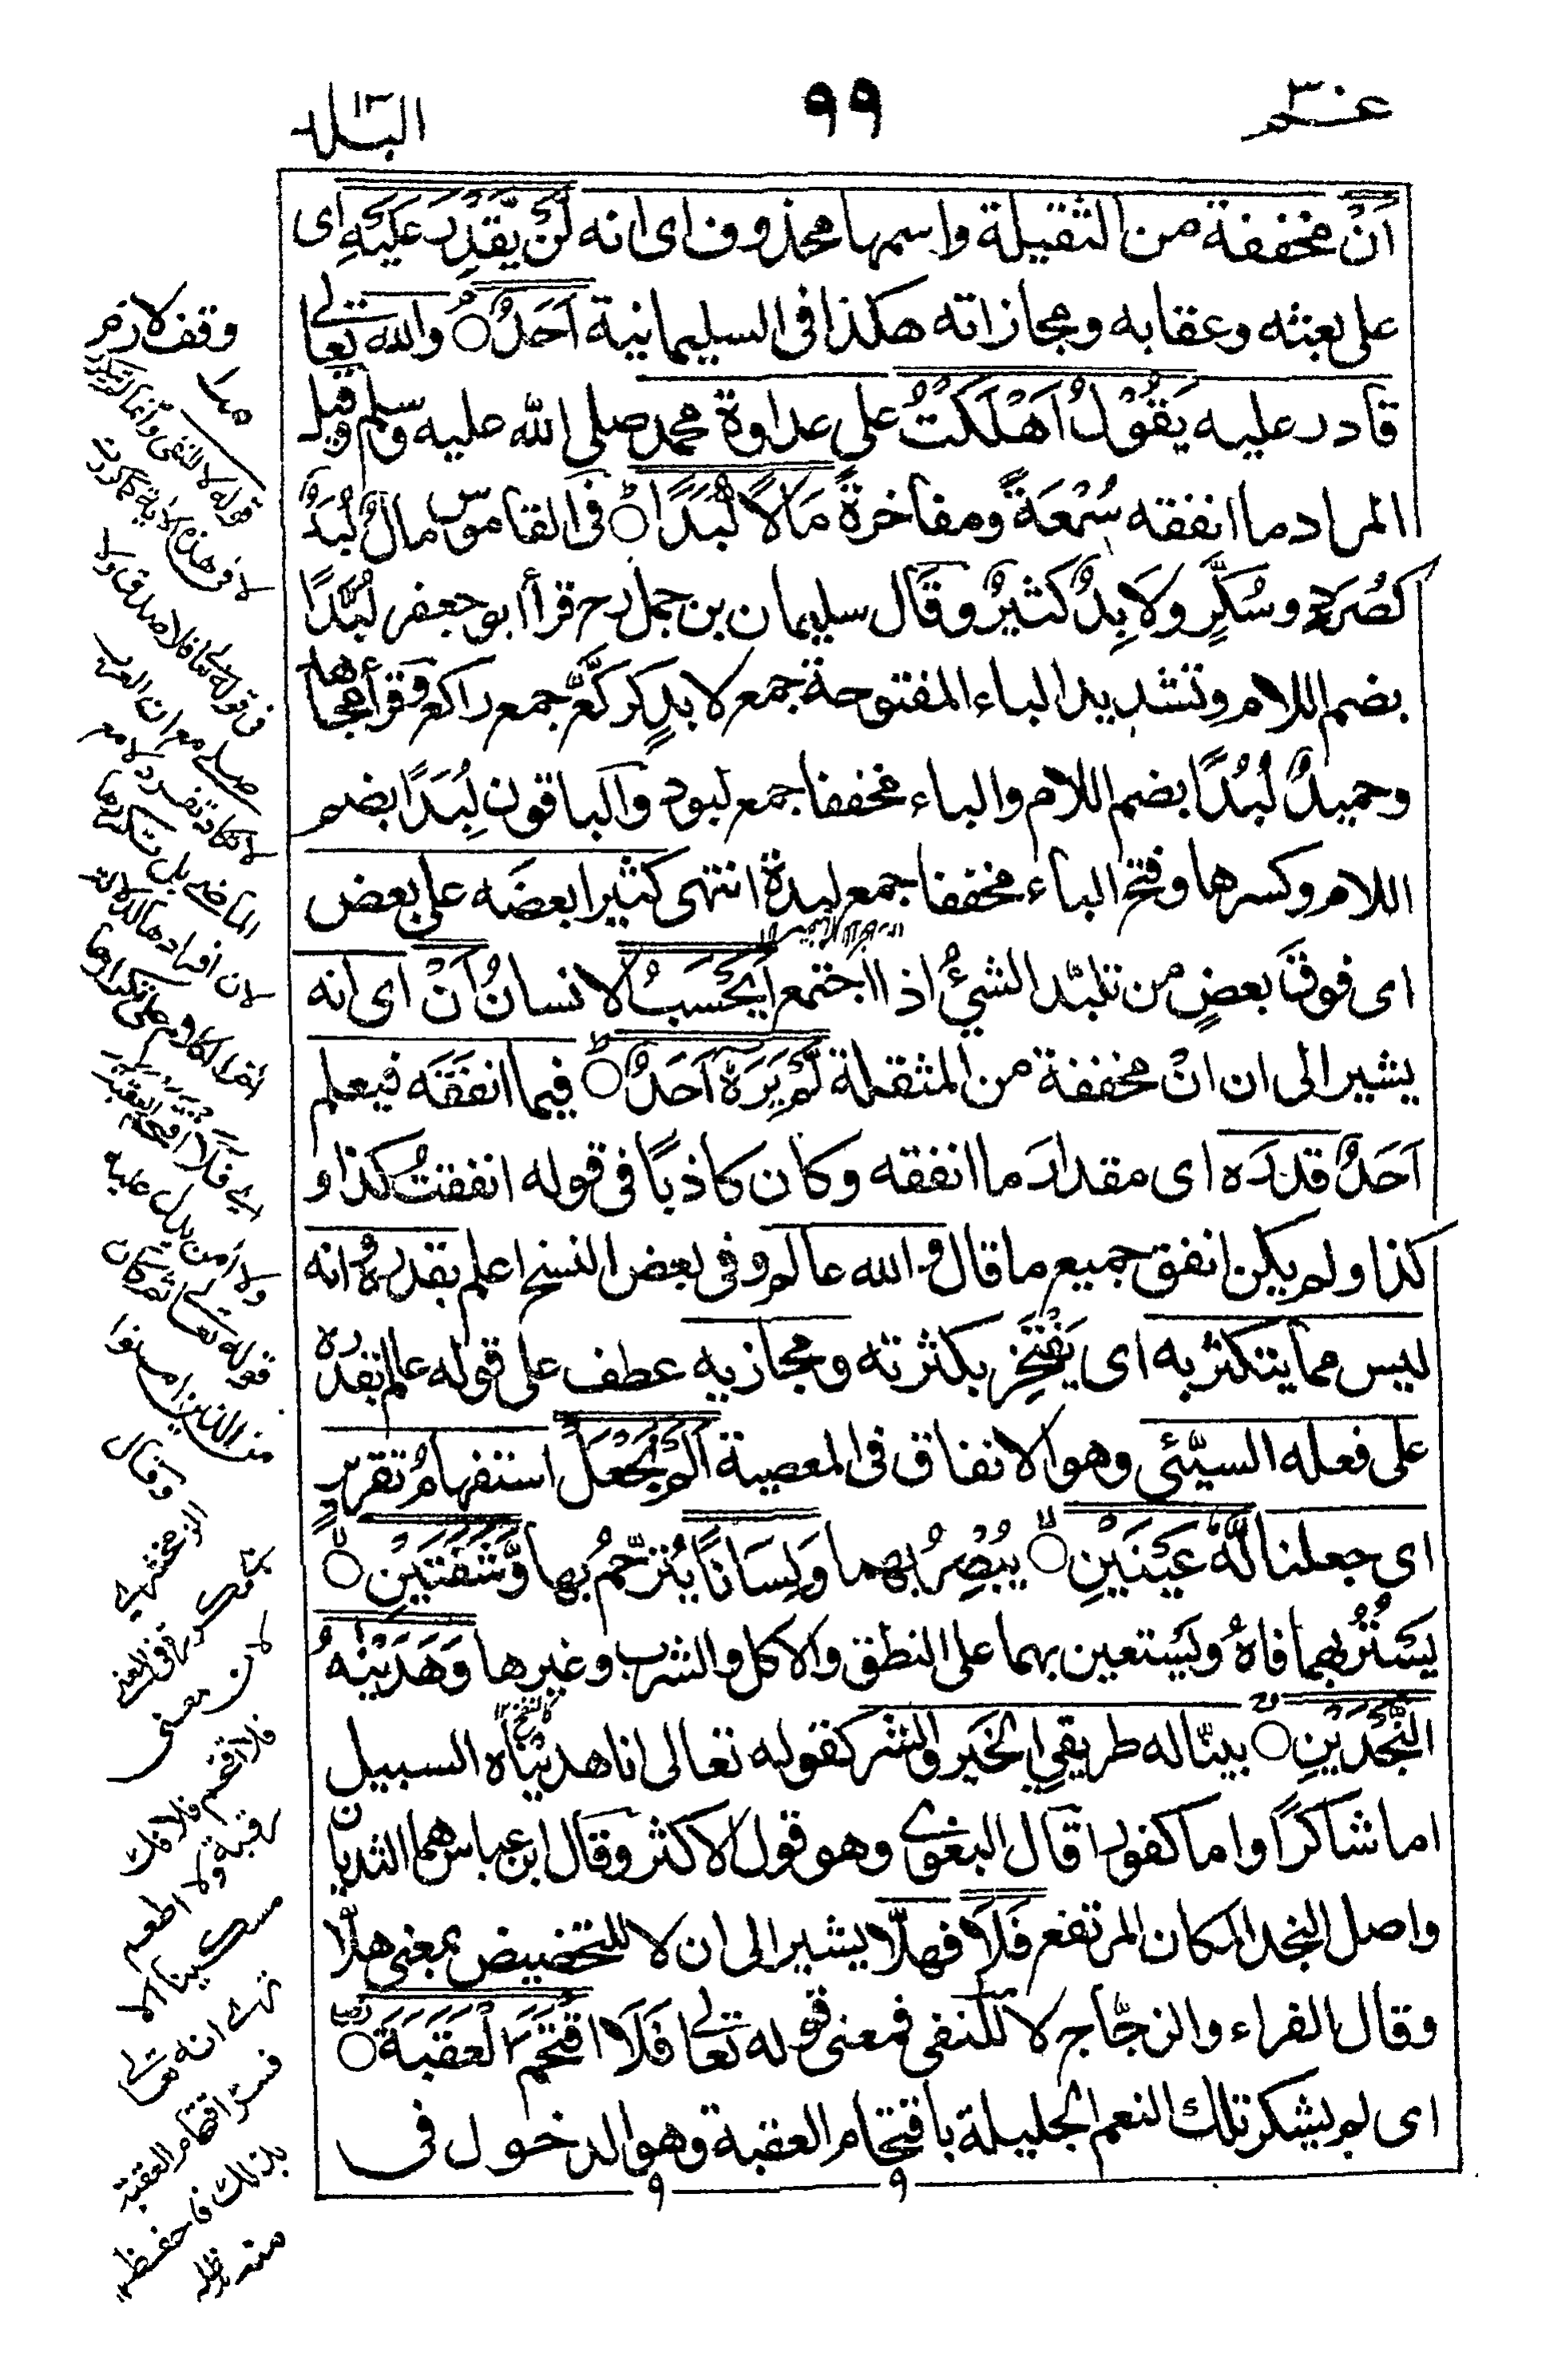 عم ٣٠
٩٩
البلد
اَنْ مخففة من الثقيلة واسمها محذوف اى انه لَّنْ يَّقْدِرَ عَلَيْهِ اى
على بعثه وعقابه ومجازاته هكذا فى السليمانية اَحَدٌ ۘ والله تعالى
قادر عليه يَقُوْلُ اَهْلَكْتُ على عداوة محمد صلى الله عليه وسلم وقيل
المراد ما انفقه سُمْعَةً ومفاخرةً مَالًا لُّبَدًا ؕ فى القاموس مالٌ لُبَدٌ
كصُرَدٍ وسُكَّرٍ ولَابِدٌ كثيرٌ وقال سليمان بن جمل رح قرأ ابو جعفر لُبَّدًا
بضم اللام وتشديد الباء المفتوحة جمع لابدٍ كركَّعٍ جمع راكع وقرأ مجاهد
وحميدٌ لُبُدًا بضم اللام والباء مخففا جمع لبود والباقون لِبَدًا بضم
اللام وكسرها وفتح الباء مخففا جمع لبدة انتهى كثيرا بعضَه على بعض
اى فوقَ بعضٍ من تلبّد الشئُ اذا اجتمع اَيَحْسَبُ الانسانُ اَنْ اى انه
يشير الى ان انْ مخففة من المثقلة لَّمْ يَرَهٗ اَحَدٌ ؕ فيما انفَقَه فيعلم
اَحَدٌ قدرَه اى مقدارَ ما انفقه وكان كاذبًا فى قوله انفقتُ كذا و
كذا ولم يكن انفق جميع ما قال والله عالم وفى بعض النسخ اعلم بقدره وانه
ليس مما يتكثر به اى يَفْتَخِر بكثرته ومجازيه عطف على قوله عالم بقدره
على فعله السيّئى وهو الانفاق فى المعصية اَلَمْ نَجْعَلْ استفهامُ تقريرٍ
اى جعلنا لَّهٗ عَيْنَيْنِ ۙ يُبْصِرُ بهما وَلِسَانًا يُترْجِمُ بها وَّشَفَتَيْنِ ۙ
يَسْتُرُ بهما فاهُ ويَستعين بهما على النطق والاكل والشرب وغيرها وَهَدَيْنٰهُ
النَّجْدَيْنِ ۚ بينّا له طريقىِ الخير والشر كقوله تعالى انا هديناه السبيل
اما شاكرًا واما كفورا قال البغوى وهو قول الاكثر وقال ابن عباس هما الثديان
واصل النجد المكان المرتفع فَلَا فهلّا يشير الى ان لا للتحضيض بمعنى هلّا
وقال الفراء والزجّاج لا للنفى فمعنى قوله تعالى فَلَا اقْتَحَمَ الْعَقَبَةَ ۖ
اى لم يشكر تلك النعم الجليلة باقتحام العقبة وهو الدخول فى
وقف لازم
قوله لا للنفى وانما لم تتكرر
لا فى هذه الآية كما تكررت
فى قوله تعالى فلا صدق ولا
صلى مع ان العرب
لا تكاد تفرد لا مع
الماضى بل تتكررها
لان افرادها
فلا اقتحم العقبة
قوله تعالى ثم كان
من الذين امنوا
وقال
الزمخشرى
لان معنى
فلا اقتحم فلا فك
رقبة ولا اطعم
مسكينا الا
ترى انه تعالى
فسر اقتحام العقبة
بذلك فاحفظ
منه